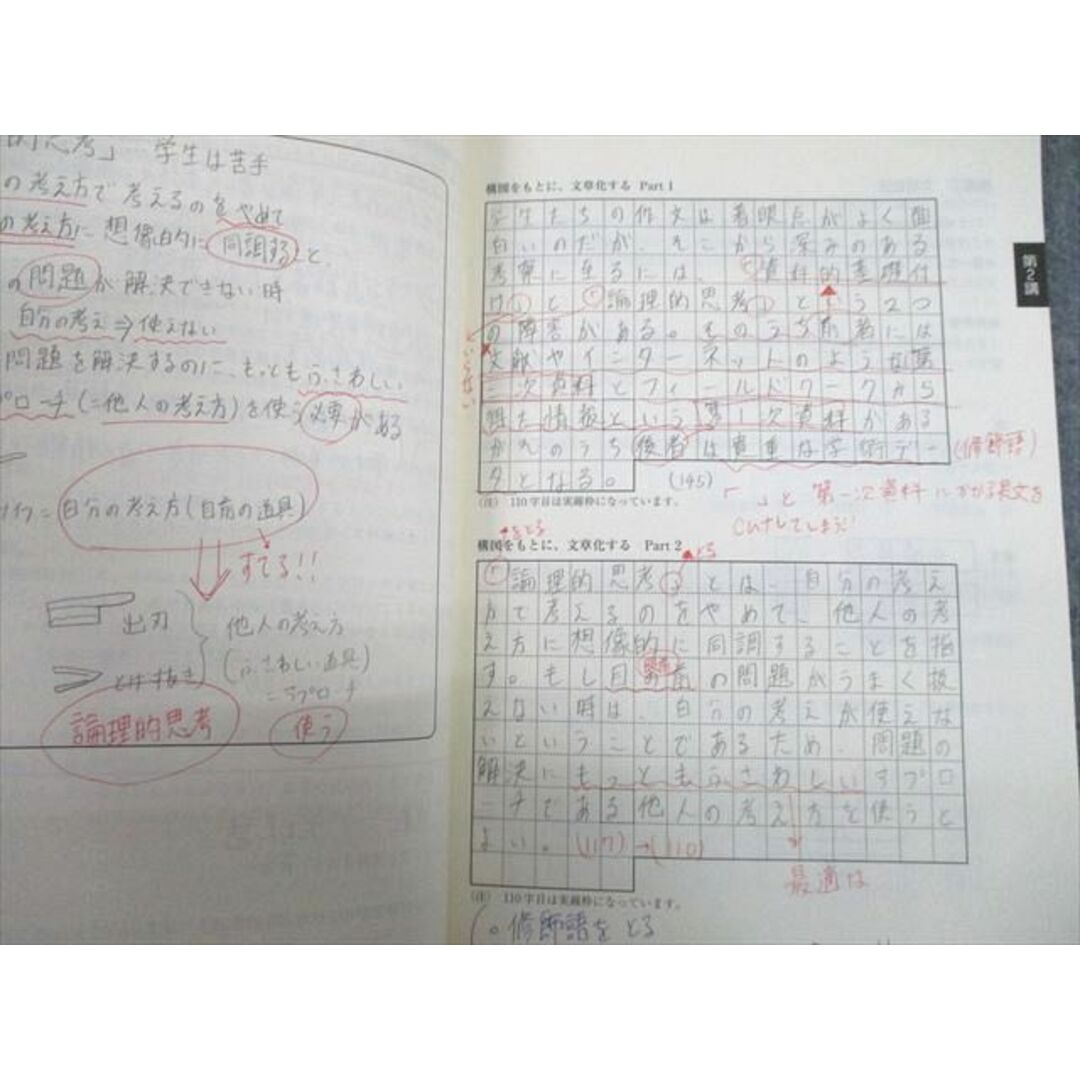 的思考」 学生は苦手
の考え方で考えるのをやめて
の考え方に想像的に同調すると、
の問題が解決できない時
自分の考え⇒使えない
問題を解決するのに、もっともふさわしい
プローチ(=他人の考え方)を使う必要がある
イフ=自分の考え方(自前の道具)
すてる!!
出刃
とげ抜き
他人の考え方
(ふさわしい道具)
=アプローチ
論理的思考
使う
第2講
構図をもとに、文章化する Part 1
学生たちの作文は着眼点がよく面
白いのだが、そこから深みのある
考察に至るには、「資料的基礎付
け」と「論理的思考」という2つ
の障害がある。そのうち前者には
文献やインターネットのような第
二次資料とフィールドワークから
得た情報という第一次資料がある
がそのうち後者は貴重な学術デー
タとなる。
(145)
(注) 110字目は実線枠になっています。
(修飾語)
「 」と 第一次資料にかかる長文を
をとる
構図をもとに、文章化する Part 2
「論理的思考」とは、自分の考え
方で考えるのをやめて、他人の考
え方に想像的に同調することを指
す。もし目の前の問題がうまく扱
えない時は、自分の考えが使えな
いということであるため、問題の
解決にもっともふさわしいアプロ
ーチである他人の考え方を使うと
よい。
(117)→(110)
最適な
(注) 110字目は実線枠になっています。
○修飾語をとる